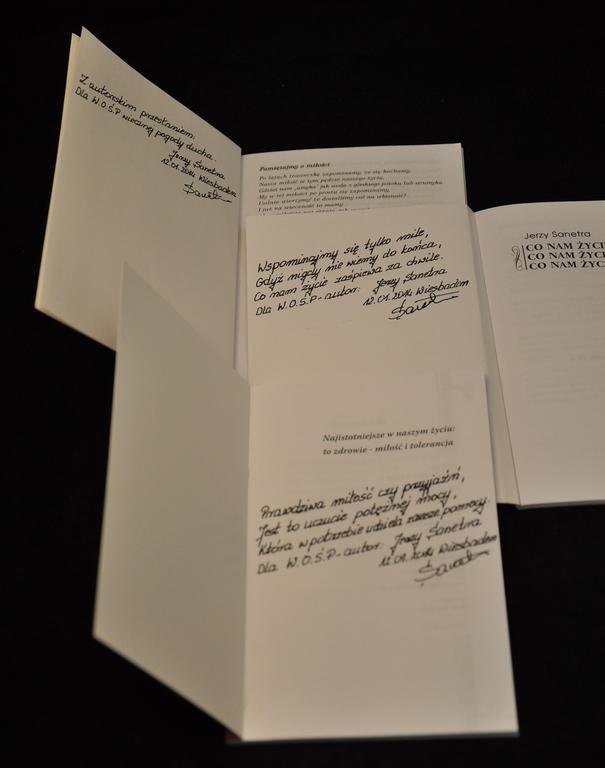 Z autorskim przesłaniem:
Dla W.O.Ś.P wiecznej pogody ducha.
Jerzy Sanetra
12.01.2014 Wiesbaden
Pamiętajmy o miłości
Po latach troszeczkę zapominamy, że się kochamy,
Nasza miłość w tym pędzie naszego życia,
Gdzieś nam „umyka” jak woda z górskiego potoku lub strumyka.
My w tej miłości po prostu się zapominamy,
Usilnie wierzymy! że dostaliśmy coś na własność?
I już na wieczność to mamy.
Wspominajmy się tylko mile,
Gdyż nigdy nie wiemy do końca,
Co nam życie zaśpiewa za chwilę.
Dla W.O.Ś.P - autor: Jerzy Sanetra
12.01.2014 Wiesbaden
Jerzy Sanetra
CO NAM ŻYCI
CO NAM ŻYC
CO NAM ŻYC
Najistotniejsze w naszym życiu:
to zdrowie - miłość i tolerancja
Prawdziwa miłość czy przyjaźń,
Jest to uczucie potężnej mocy,
Która w potrzebie udziela zawsze pomocy.
Dla W.O.Ś.P - autor: Jerzy Sanetra
12.01.2014 Wiesbaden